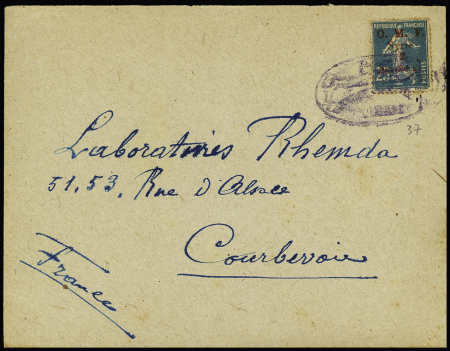 REPUBLIQUE FRANÇAISE
O. M. F.
POSTES
37
Laboratoires Rhemda
51.53. Rue d'Alsace
Courbevoie
France